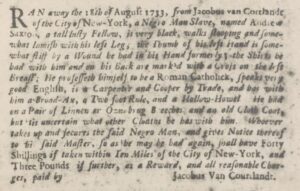 RAN away the 18th of August 1733, from Jacobus van Cortlandt
of the City of New-York, a Negro Man Slave, named Andrew
Saxon, a tall lusty Fellow, is very black, walks stooping and somew-
what lamish with his left Leg; the Thumb of his left Hand is some-
what stiff by a Wound he had in his Hand formerly; the Shirts he
had with him and on his Back are mark'd with a Cross on the left
Breast; He professeth himself to be a Roman Catholick, speaks very
good English, is a Carpenter and Cooper by Trade, and has with
him a Broad-Ax, a Two foot Rule, and a Hollow-Howel. He had
on a Pair of Linnen or Oznabrug Breeches, and an old Cloth Coat,
but tis uncertain what other Cloaths he has with him. Whoever
takes up and secures the said Negro Man, and gives Notice thereof
to his said Master, so as he may be had again, shall have Forty
Shillings if taken within Ten Miles of the City of New-York, and
Three Pounds if further, as a Reward, and all reasonable Char-
ges, paid by Jacobus Van Courtlandt.